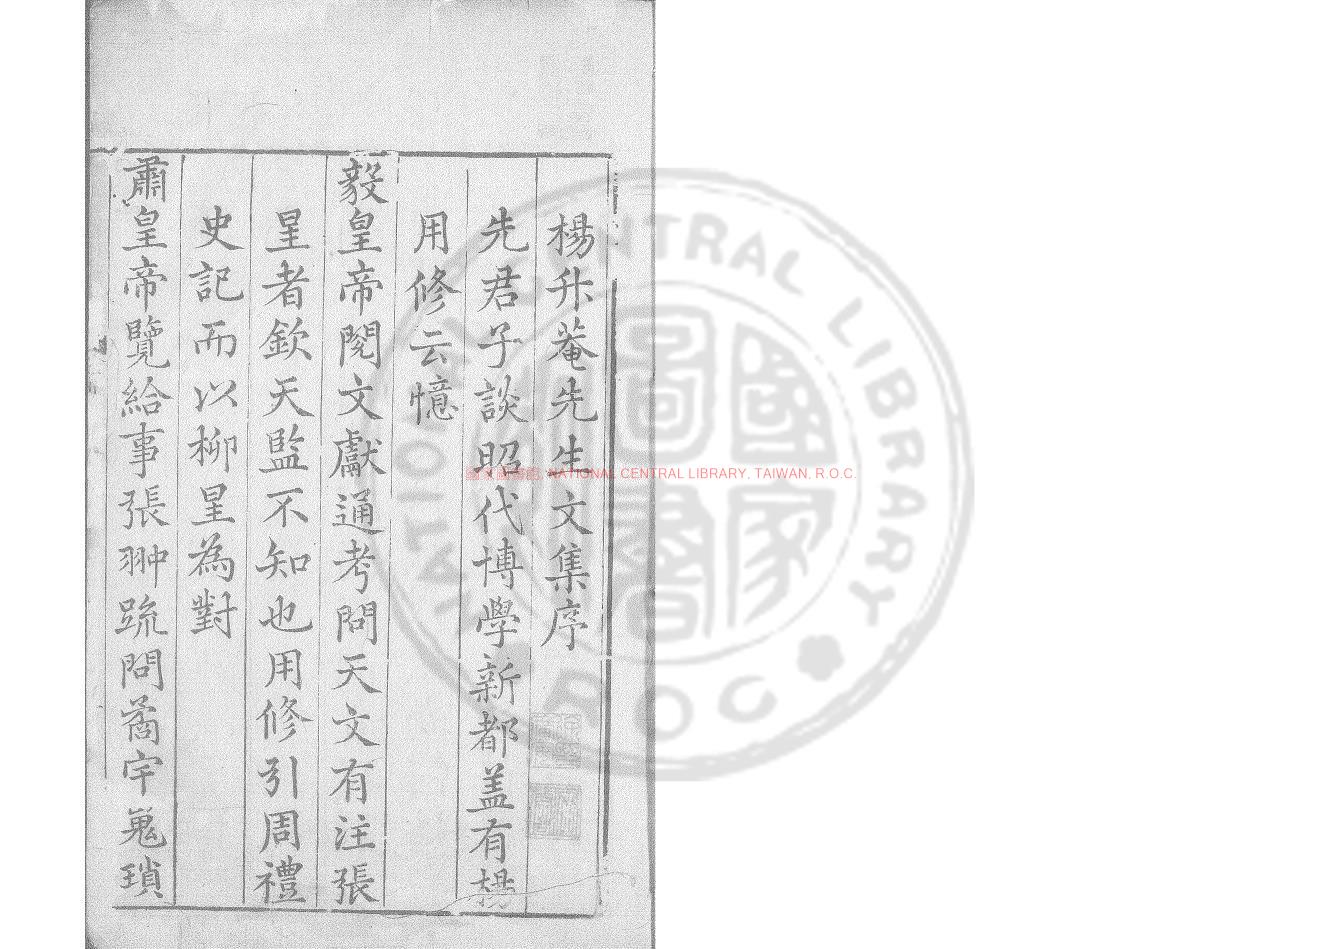 楊升菴先生文集序
先君子談昭代博學新都盖有楊
用修云憶
毅皇帝閱文獻通考問天文有注張
星者欽天監不知也用修引周禮
史記而以柳星為對
肅皇帝覽給事張翀疏問矞宇嵬瑣
國家圖書館, NATIONAL CENTRAL LIBRARY, TAIWAN, R.O.C.
NATIONAL CENTRAL LIBRARY
ROC